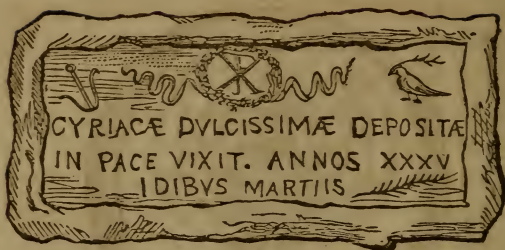 CYRIACÆ DVLCISSIMÆ DEPOSITÆ
IN PACE VIXIT. ANNOS XXXV
IDIBVS MARTIIS